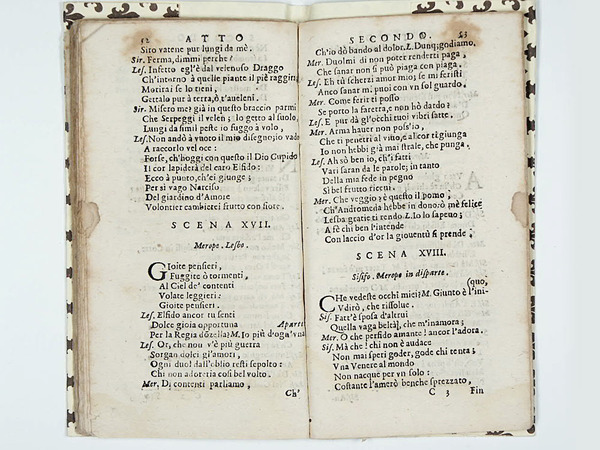 52 ATTO
Siro vatene pur lungi da mè.
Sir. Ferma, dimmi perche?
Les. Infetto egl'è dal velenoso Draggo
Ch'intorno à quelle piante il piè raggin,
Morirai se lo tieni,
Gettalo pur à terra, ò t'aueleni.
Sir. Misero me? già in questo braccio parmi
Che Serpeggi il velen; lo getto al suolo,
Lungi da simil peste io fuggo à volo,
Les. Non andò à vuoto il mio disegno; io vado
A raccorlo veloce:
Forse, ch'hoggi con questo il Dio Cupido
Il cor lapiderà del caro Elfido:
Ecco à punto, ch'ei giunge;
Per sì vago Narciso
Del giardino d'Amore
Volontier cambierei frutto con fiore.
SCENA XVII.
Merope. Lesbo.
GIoite pensieri,
Fuggite ò tormenti,
Al Ciel de' contenti
Volate leggieri:
Gioite pensieri.
Les. Elfido ancor tu senti
Dolce gioia opportuna Aparte
Per la Regia dõzella? M. Io più d'ogn'vna
Les. Or, che non v'è più guerra
Sorgan dolci gl'amori,
Ogni duol dall'oblio resti sepolto:
Chi non adoreria così bel volto.
Mer. Di contenti parliamo,
Ch'
SECONDO. 53
Ch'io dò bando al dolor. L. Dunq; godiamo.
Mer. Duolmi di non poter renderti paga,
Che sanar non si può piaga con piaga.
Les. Eh tù scherzi amor mio; se mi feristi
Anco sanar mi puoi con vn sol guardo.
Mer. Come ferir ti posso
Se porto la faretra, e non hò dardo?
Les. E pur dà gl'occhi tuoi vibri saette.
Mer. Arma hauer non poss'io,
Che ti penetri al viuo, e al cor ti giunga
Io non hebbi già mai strale, che punga.
Les. Ah sò ben io, ch'i fatti
Vari saran da le parole; in tanto
Della mia fede in pegno
Sì bel frutto riceui.
Mer. Che veggio; è questo il pomo;
Ch'Andromeda hebbe in dono: ò mè felice
Lesba gratie ti rendo L. Io lo sapeuo;
A fè chi ben l'intende
Con laccio d'or la giouentù si prende.
SCENA XVIII.
Sisifo. Merope in disparte.
(quo,
CHe vedeste occhi miei? M. Giunto è l'ini-
Vdirò, che rissolue.
Sis. Fatt'è sposa d'altrui
Quella vaga beltà, che m'inamora;
Mer. O che perfido amante! ancor l'adora.
Sis. Mà che! chi non è audace
Non mai speri goder, gode chi tenta;
Vna Venere al mondo
Non nacque per vn solo:
Costante l'amerò benche sprezzato,
C 3 Fin